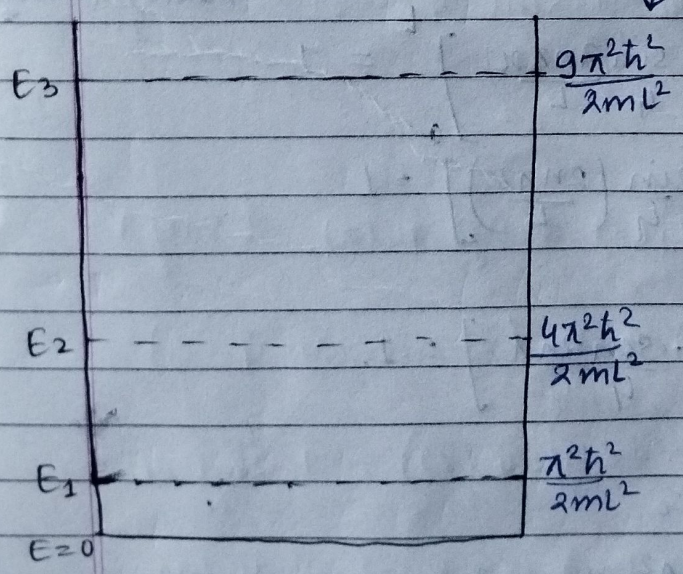 E3 9π²ħ²
2mL²
E2 4π²ħ²
2mL²
E1 π²ħ²
2mL²
E=0